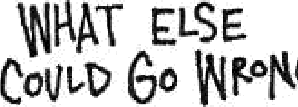 WHAT ELSE
COULD GO WRON